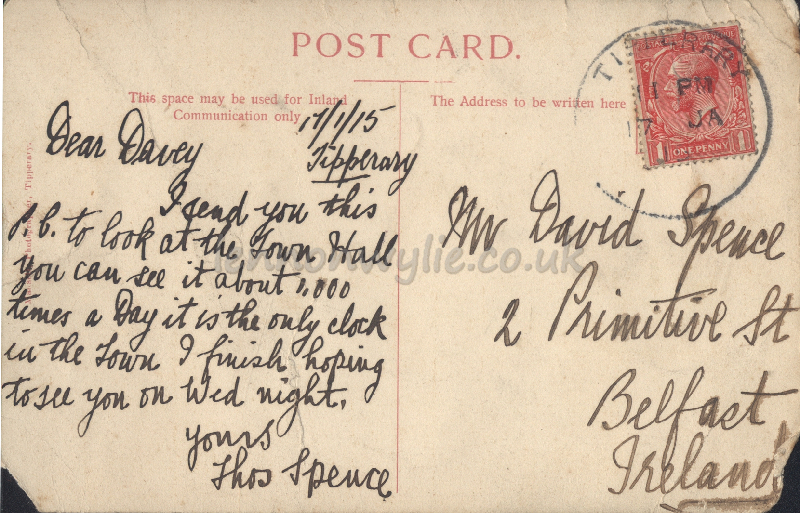 POST CARD.
This space may be used for Inland
Communication only
The Address to be written here
TIPPERARY
PM
17 JA
1 ONE PENNY 1
17/1/15
Tipperary
Dear Davey
I send you this
P.C. to look at the Town Hall
you can see it about 1,000
times a Day it is the only clock
in the Town I finish hoping
to see you on Wed night.
yours
Thos Spence
Mr David Spence
2 Primitive St
Belfast
Ireland
Tipperary.
lennonwylie.co.uk